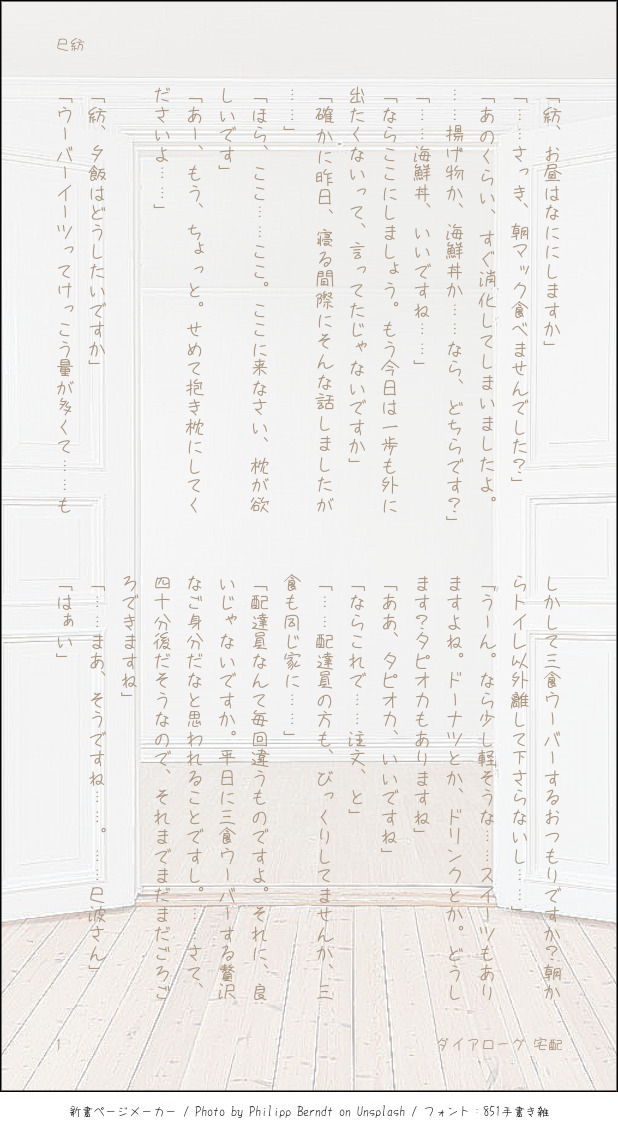 巳紡
「紡、お昼はなににしますか」
「……さっき、朝マック食べませんでした？」
「あのくらい、すぐ消化してしまいましたよ。
……揚げ物か、海鮮丼か……なら、どちらです？」
「……海鮮丼、いいですね……」
「ならここにしましょう。もう今日は一歩も外に
出たくないって、言ってたじゃないですか」
「確かに昨日、寝る間際にそんな話しましたが
……」
「ほら、ここ……ここ。ここに来なさい、枕が欲
しいです」
「あー、もう、ちょっと。せめて抱き枕にしてく
ださいよ……」
「紡、夕飯はどうしたいですか」
「ウーバーイーツってけっこう量が多くて……も
しかして三食ウーバーするおつもりですか？朝か
らトイレ以外離して下さらないし……」
「うーん。なら少し軽そうな……スイーツもあり
ますよね。ドーナツとか、ドリンクとか。どうし
ます？タピオカもありますね」
「ああ、タピオカ、いいですね」
「ならこれで……注文、と」
「……配達員の方も、びっくりしてませんか、三
食も同じ家に……」
「配達員なんて毎回違うものですよ。それに、良
いじゃないですか。平日に三食ウーバーする贅沢
なご身分だなと思われることですし。……さて、
四十分後だそうなので、それまでまだまだごろご
ろできますね」
「……まあ、そうですね……。……巳波さん」
「はぁい」
1
ダイアローグ 宅配
新書ページメーカー / Photo by Philipp Berndt on Unsplash / フォント：851手書き雑